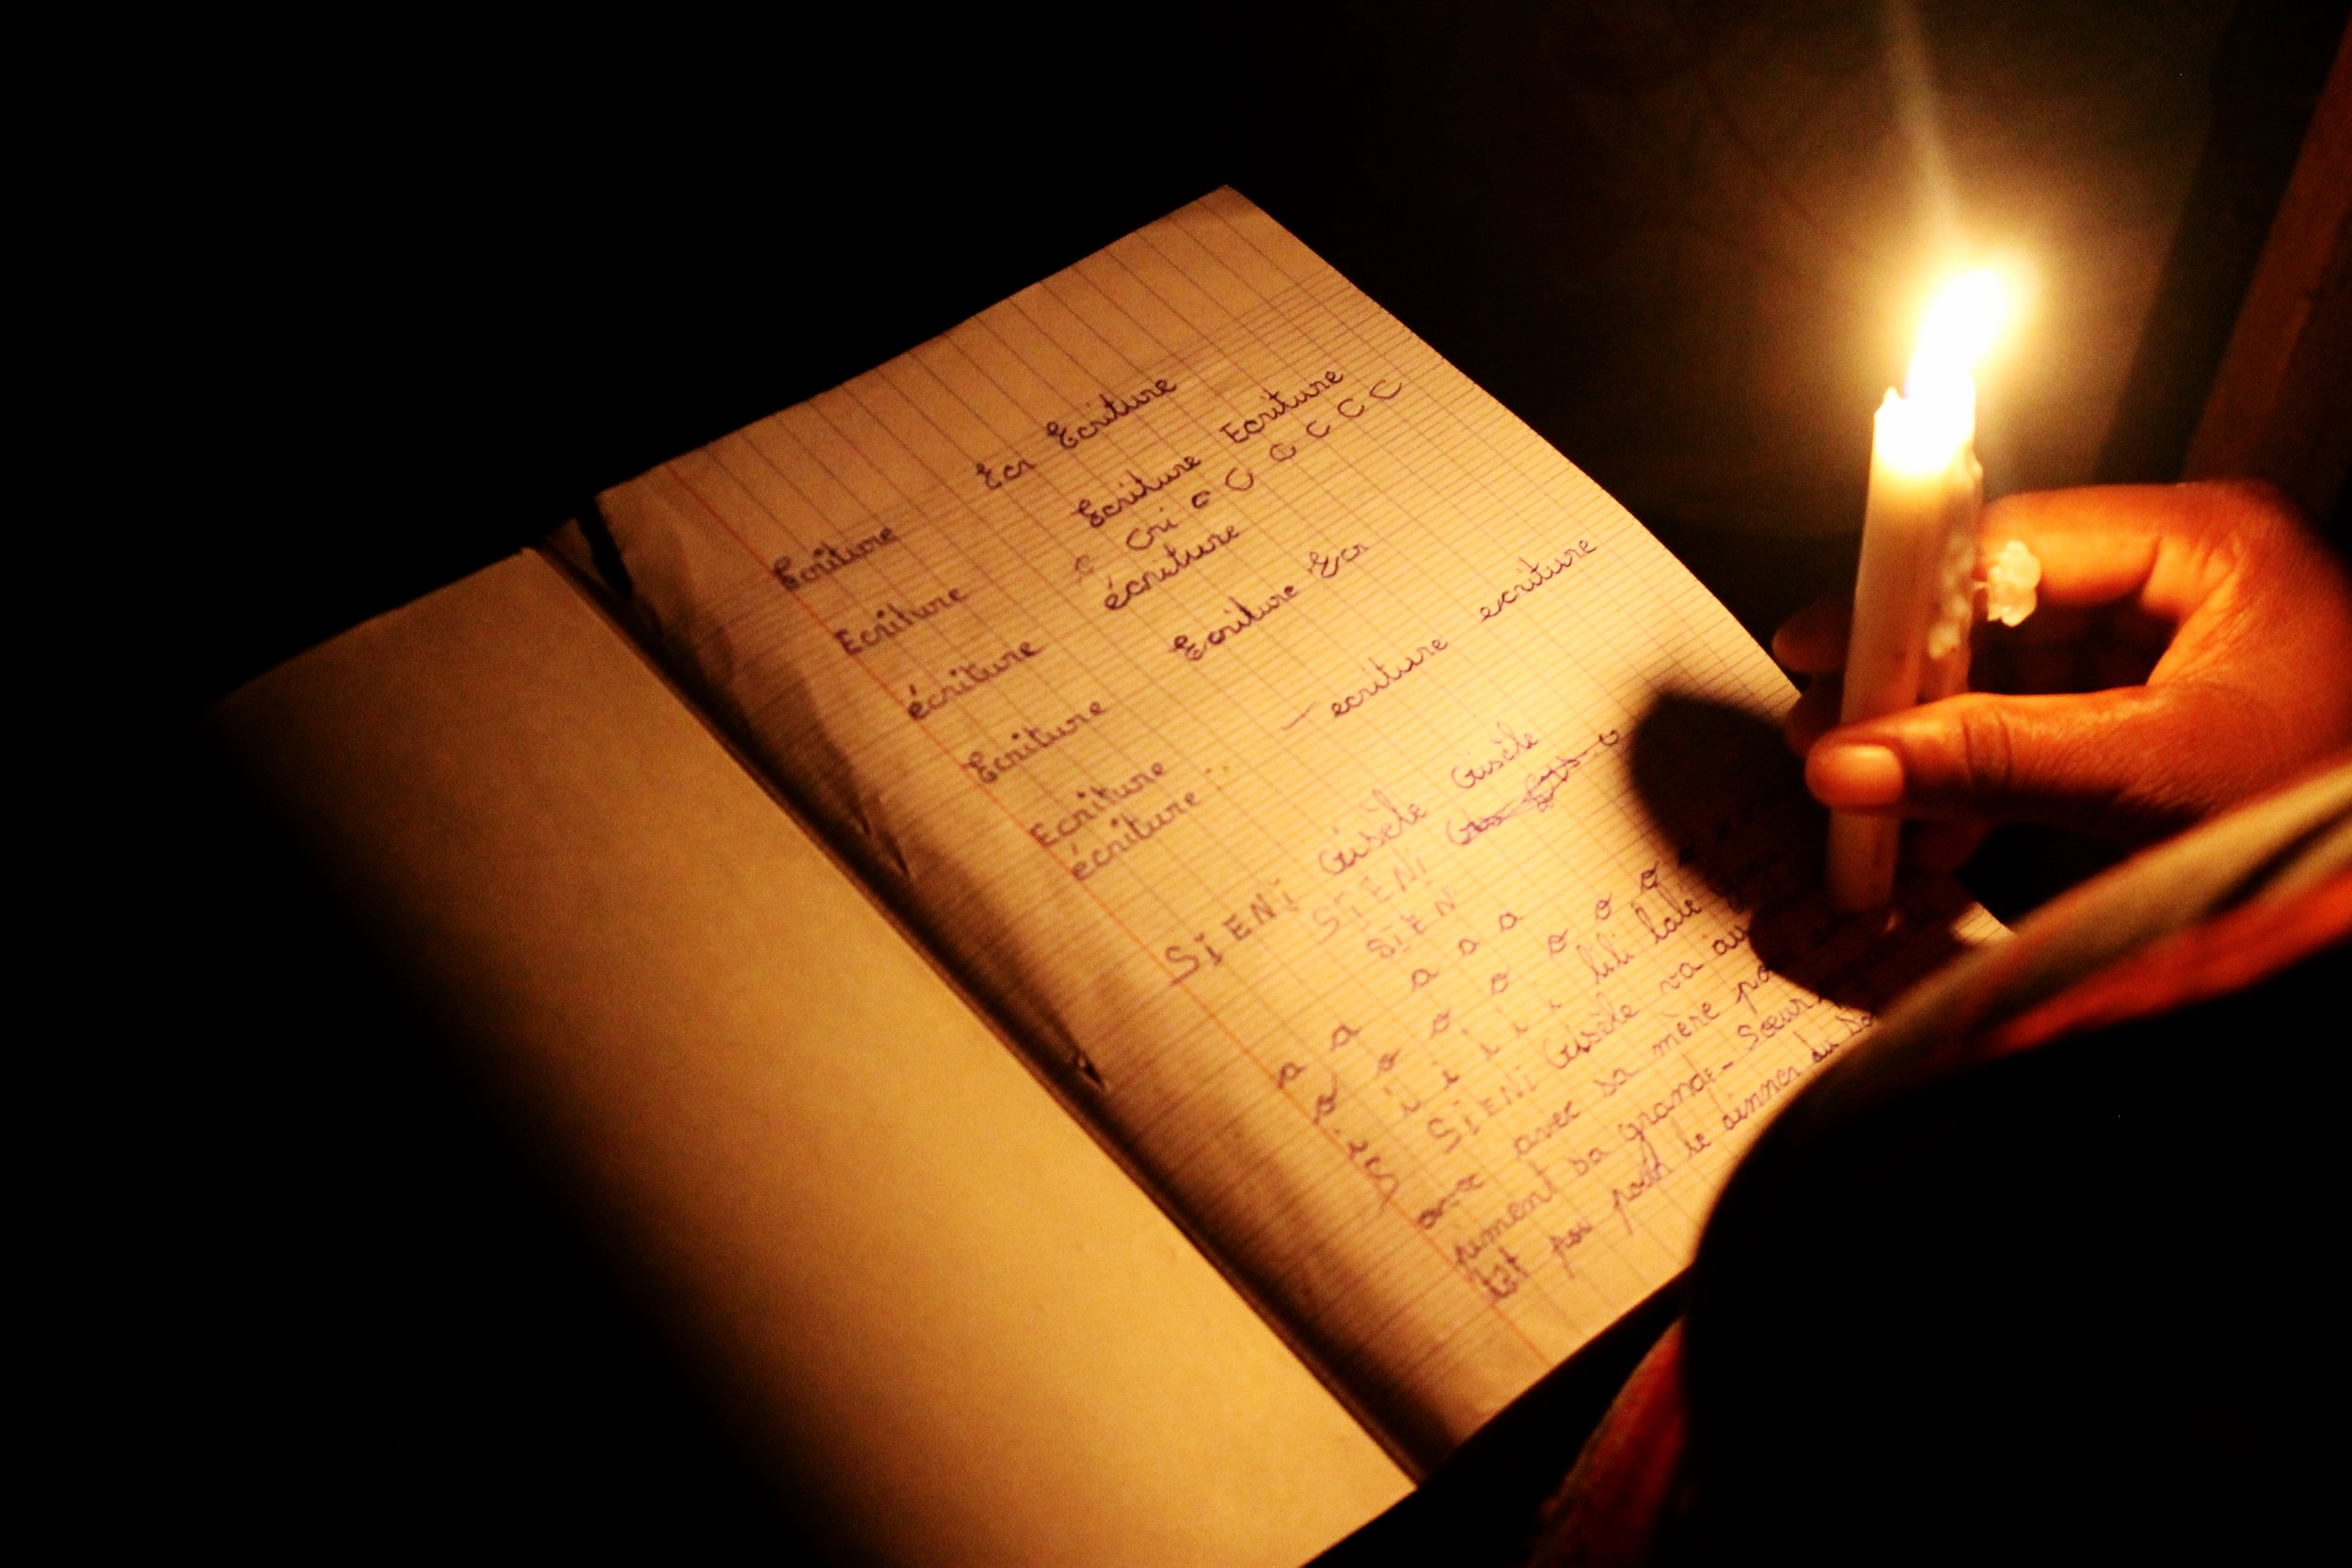 Ecr Ecriture
Ecriture Ecriture Ecriture
c Cri c C C C C C
Ecriture écriture
écriture Ecriture Ecr
Ecriture - ecriture ecriture
Ecriture
écriture
SIENI Gisèle Gisèle
SIENI
SIEN
a a a a a
o o o o o o o
i i i i i i lili
S SIENI Gisèle va au
avec sa mère
riment sa grande-Sœur
pour le dinner du